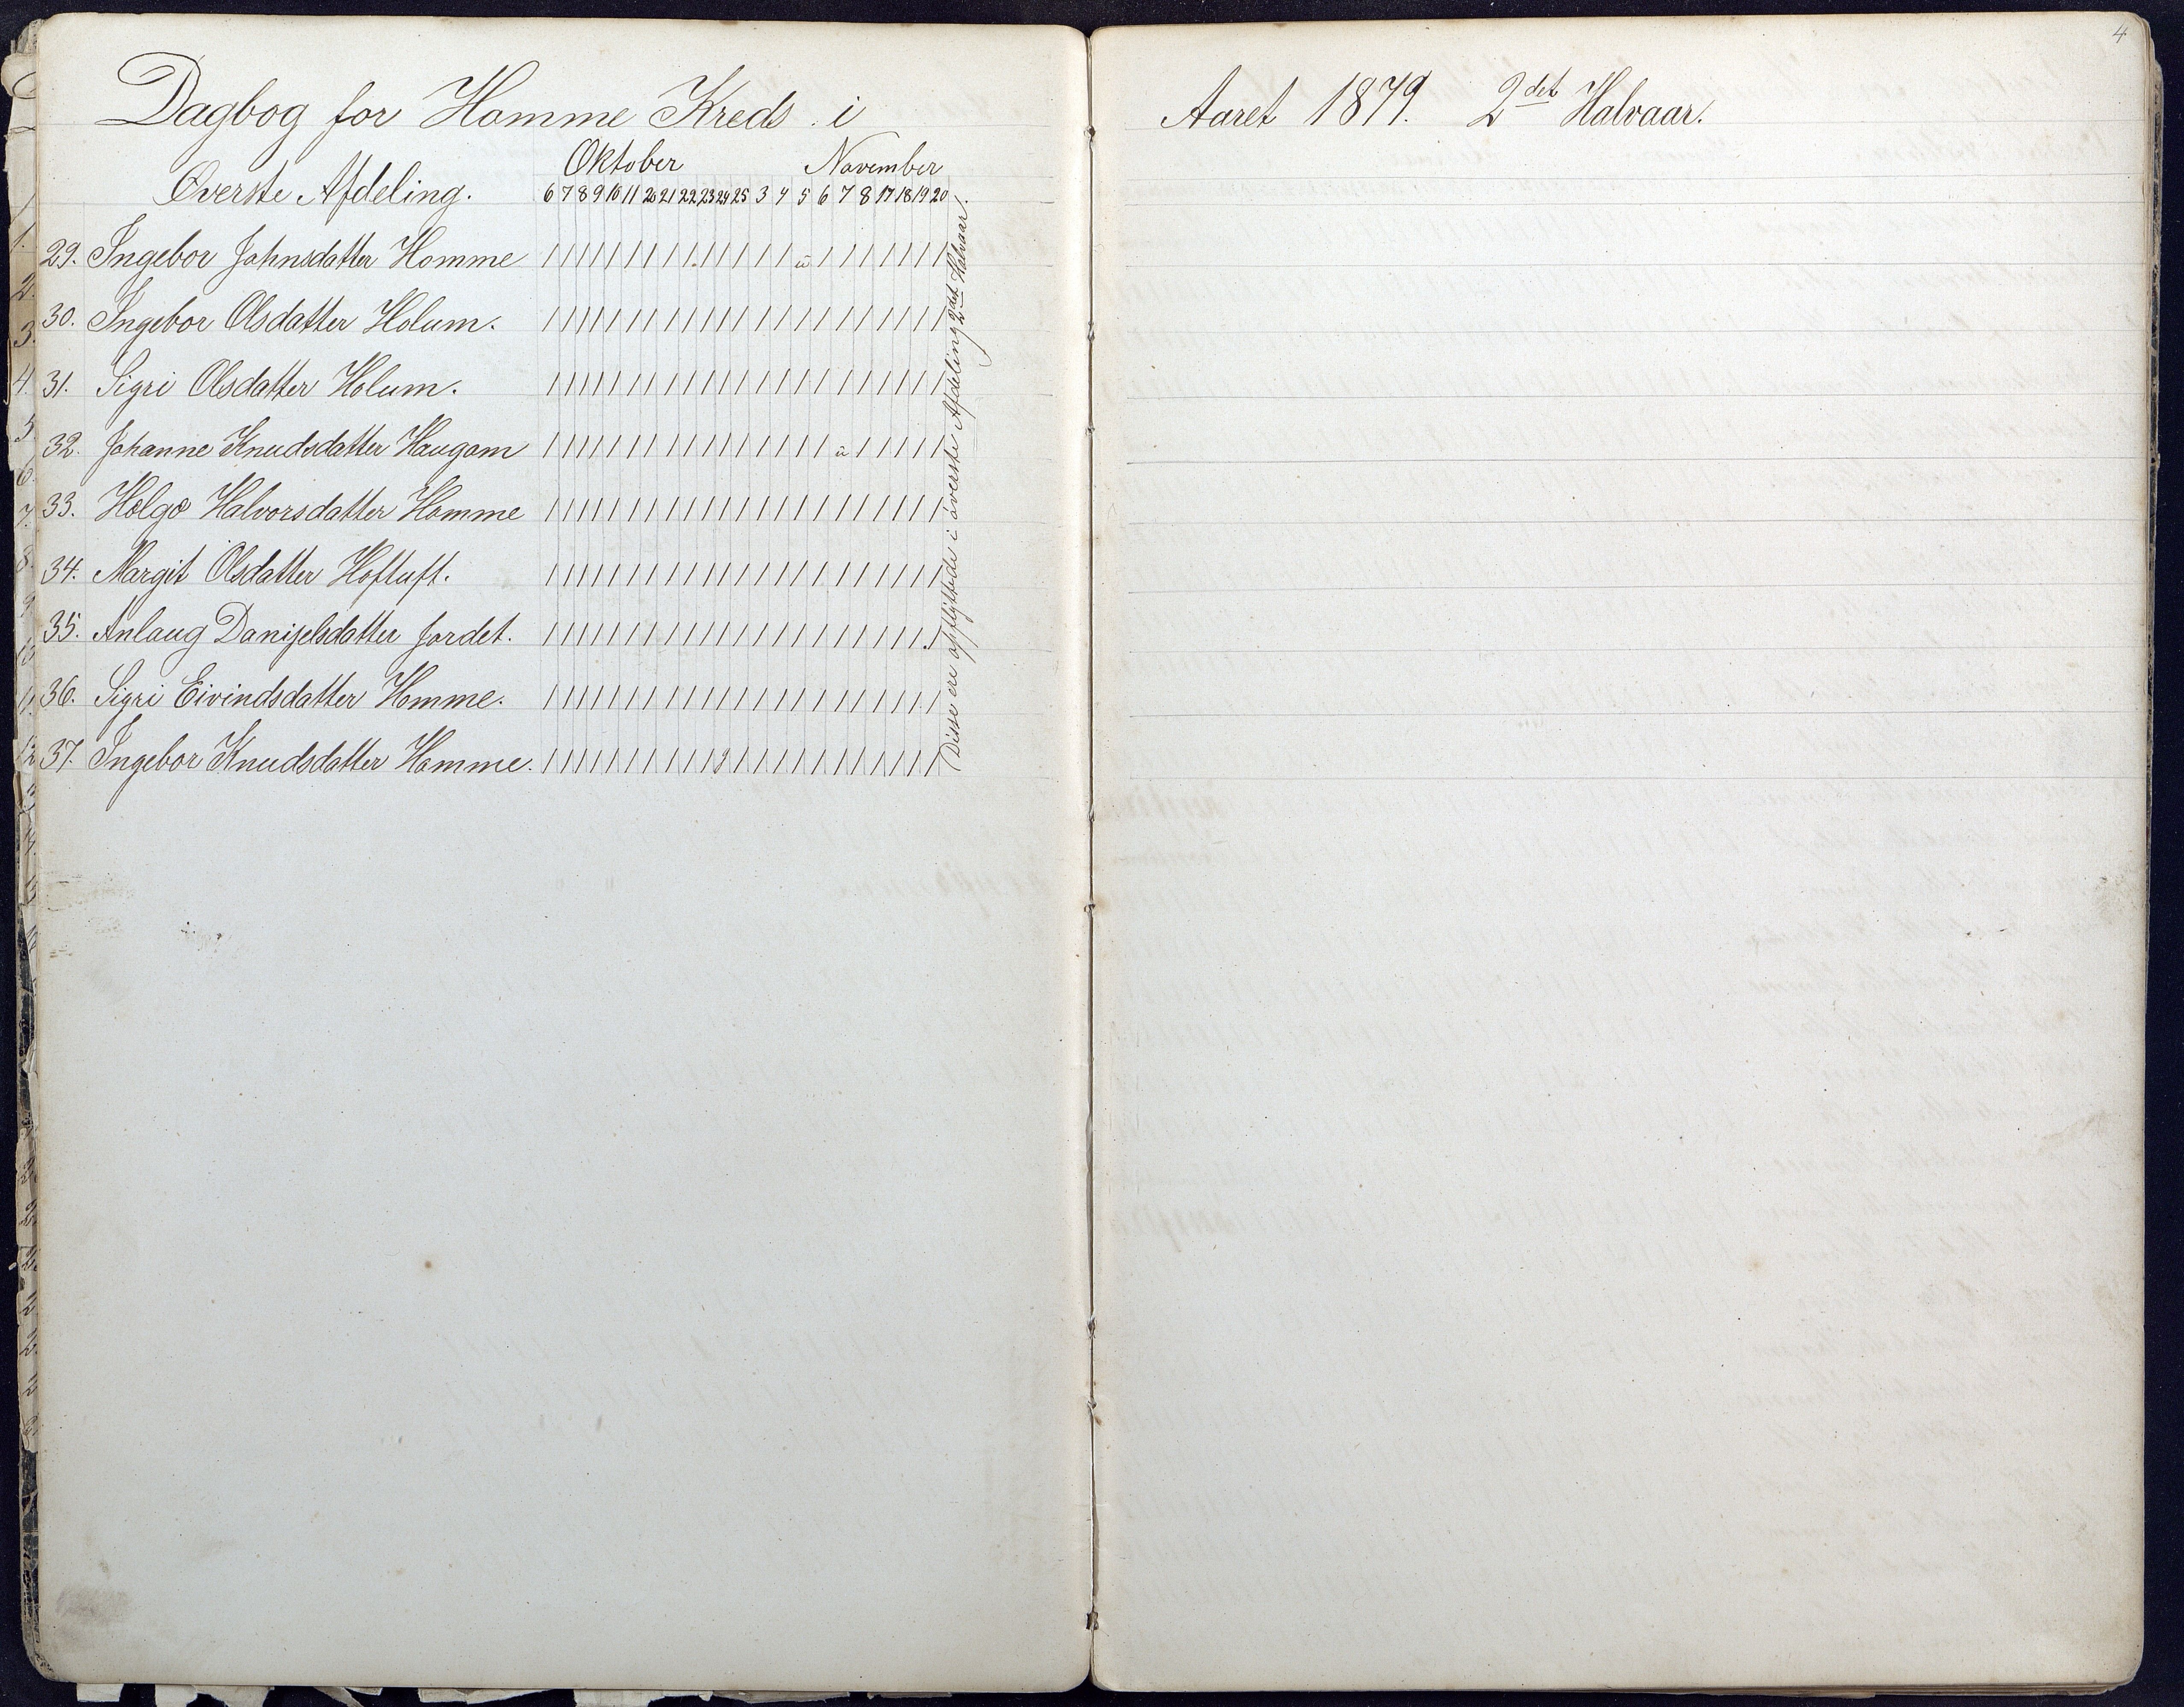 4
Dagbog for Homme Kreds i Aaret 1879. 2det Halvaar.
Oktober November
Øverste Afdeling. 6 7 8 9 10 11 20 21 22 23 24 25 3 4 5 6 7 8 17 18 19 20
29. Ingebor Johnsdatter Homme / / / / / / / / / / / / / / ü / / / / / / /
30. Ingebor Olsdatter Holum. / / / / / / / / / / / / / / / / / / / / / /
31. Sigri Olsdatter Holum. / / / / / / / / / / / / / / / / / / / / / /
32. Johanne Knudsdatter Haugom / / / / / / / / / / / / / / / / ü / / / / /
33. Helge Halvorsdatter Homme / / / / / / / / / / / / / / / / / / / / / /
34. Margit Olsdatter Hoftuft. / / / / / / / / / / / / / / / / / / / / / /
35. Anlaug Danijelsdatter Jordet. / / / / / / / / / / / / / / / / / / / / / /
36. Sigri Eivindsdatter Homme. / / / / / / / / / / / / / / / / / / / / / /
37. Ingebor Knudsdatter Homme. / / / / / / / / / / / / / / / / / / / / / /
Disse ere opflyttede i øverste Afdeling 2det Halvaar.